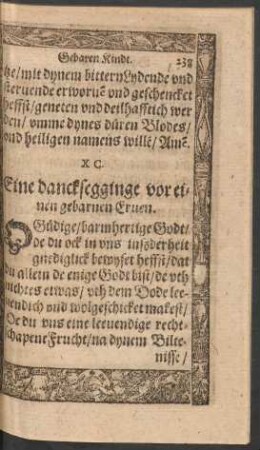 Gebaren Kindt. 238
tze/mit dynem bittern Lydende vnd
steruende erworuē vnd geschencket
heffst/geneten vnd deilhafftich wer
den/vmme dynes düren Blodes/
vnd heiligen namens willē/Amē.
X C.
Eine dancksegginge vor ei-
nen gebarnen Eruen.
O Güdige/barmhertige Godt/
Oe du ock in vns insōderheit
gnediglick bewyset heffst/dat
du allein de enige Godt bist/de vth
nichtes etwas/vth dem Dode lee-
uendich vnd wolgeschicket makest/
Oe du vns eine leeuendige recht-
schapene Frucht/na dynem Bilte-
nisse/